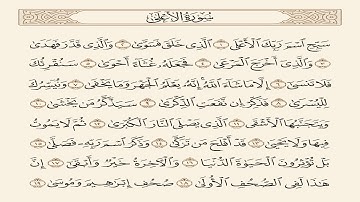 سُورَةُ الأَعْلَىٰ
سَبِّحِ اسْمَ رَبِّكَ الْأَعْلَى ١ الَّذِي خَلَقَ فَسَوَّىٰ ٢ وَالَّذِي قَدَّرَ فَهَدَىٰ
٣ وَالَّذِي أَخْرَجَ الْمَرْعَىٰ ٤ فَجَعَلَهُ غُثَاءً أَحْوَىٰ ٥ سَنُقْرِئُكَ
فَلَا تَنسَىٰ ٦ إِلَّا مَا شَاءَ اللَّهُ إِنَّهُ يَعْلَمُ الْجَهْرَ وَمَا يَخْفَىٰ ٧ وَنُيَسِّرُكَ
لِلْيُسْرَىٰ ٨ فَذَكِّرْ إِن نَّفَعَتِ الذِّكْرَىٰ ٩ سَيَذَّكَّرُ مَن يَخْشَىٰ ١٠
وَيَتَجَنَّبُهَا الْأَشْقَى ١١ الَّذِي يَصْلَى النَّارَ الْكُبْرَىٰ ١٢ ثُمَّ لَا يَمُوتُ
فِيهَا وَلَا يَحْيَىٰ ١٣ قَدْ أَفْلَحَ مَن تَزَكَّىٰ ١٤ وَذَكَرَ اسْمَ رَبِّهِ فَصَلَّىٰ ١٥
بَلْ تُؤْثِرُونَ الْحَيَوٰةَ الدُّنْيَا ١٦ وَالْآخِرَةُ خَيْرٌ وَأَبْقَىٰ ١٧ إِنَّ
هَٰذَا لَفِي الصُّحُفِ الْأُولَىٰ ١٨ صُحُفِ إِبْرَاهِيمَ وَمُوسَىٰ ١٩